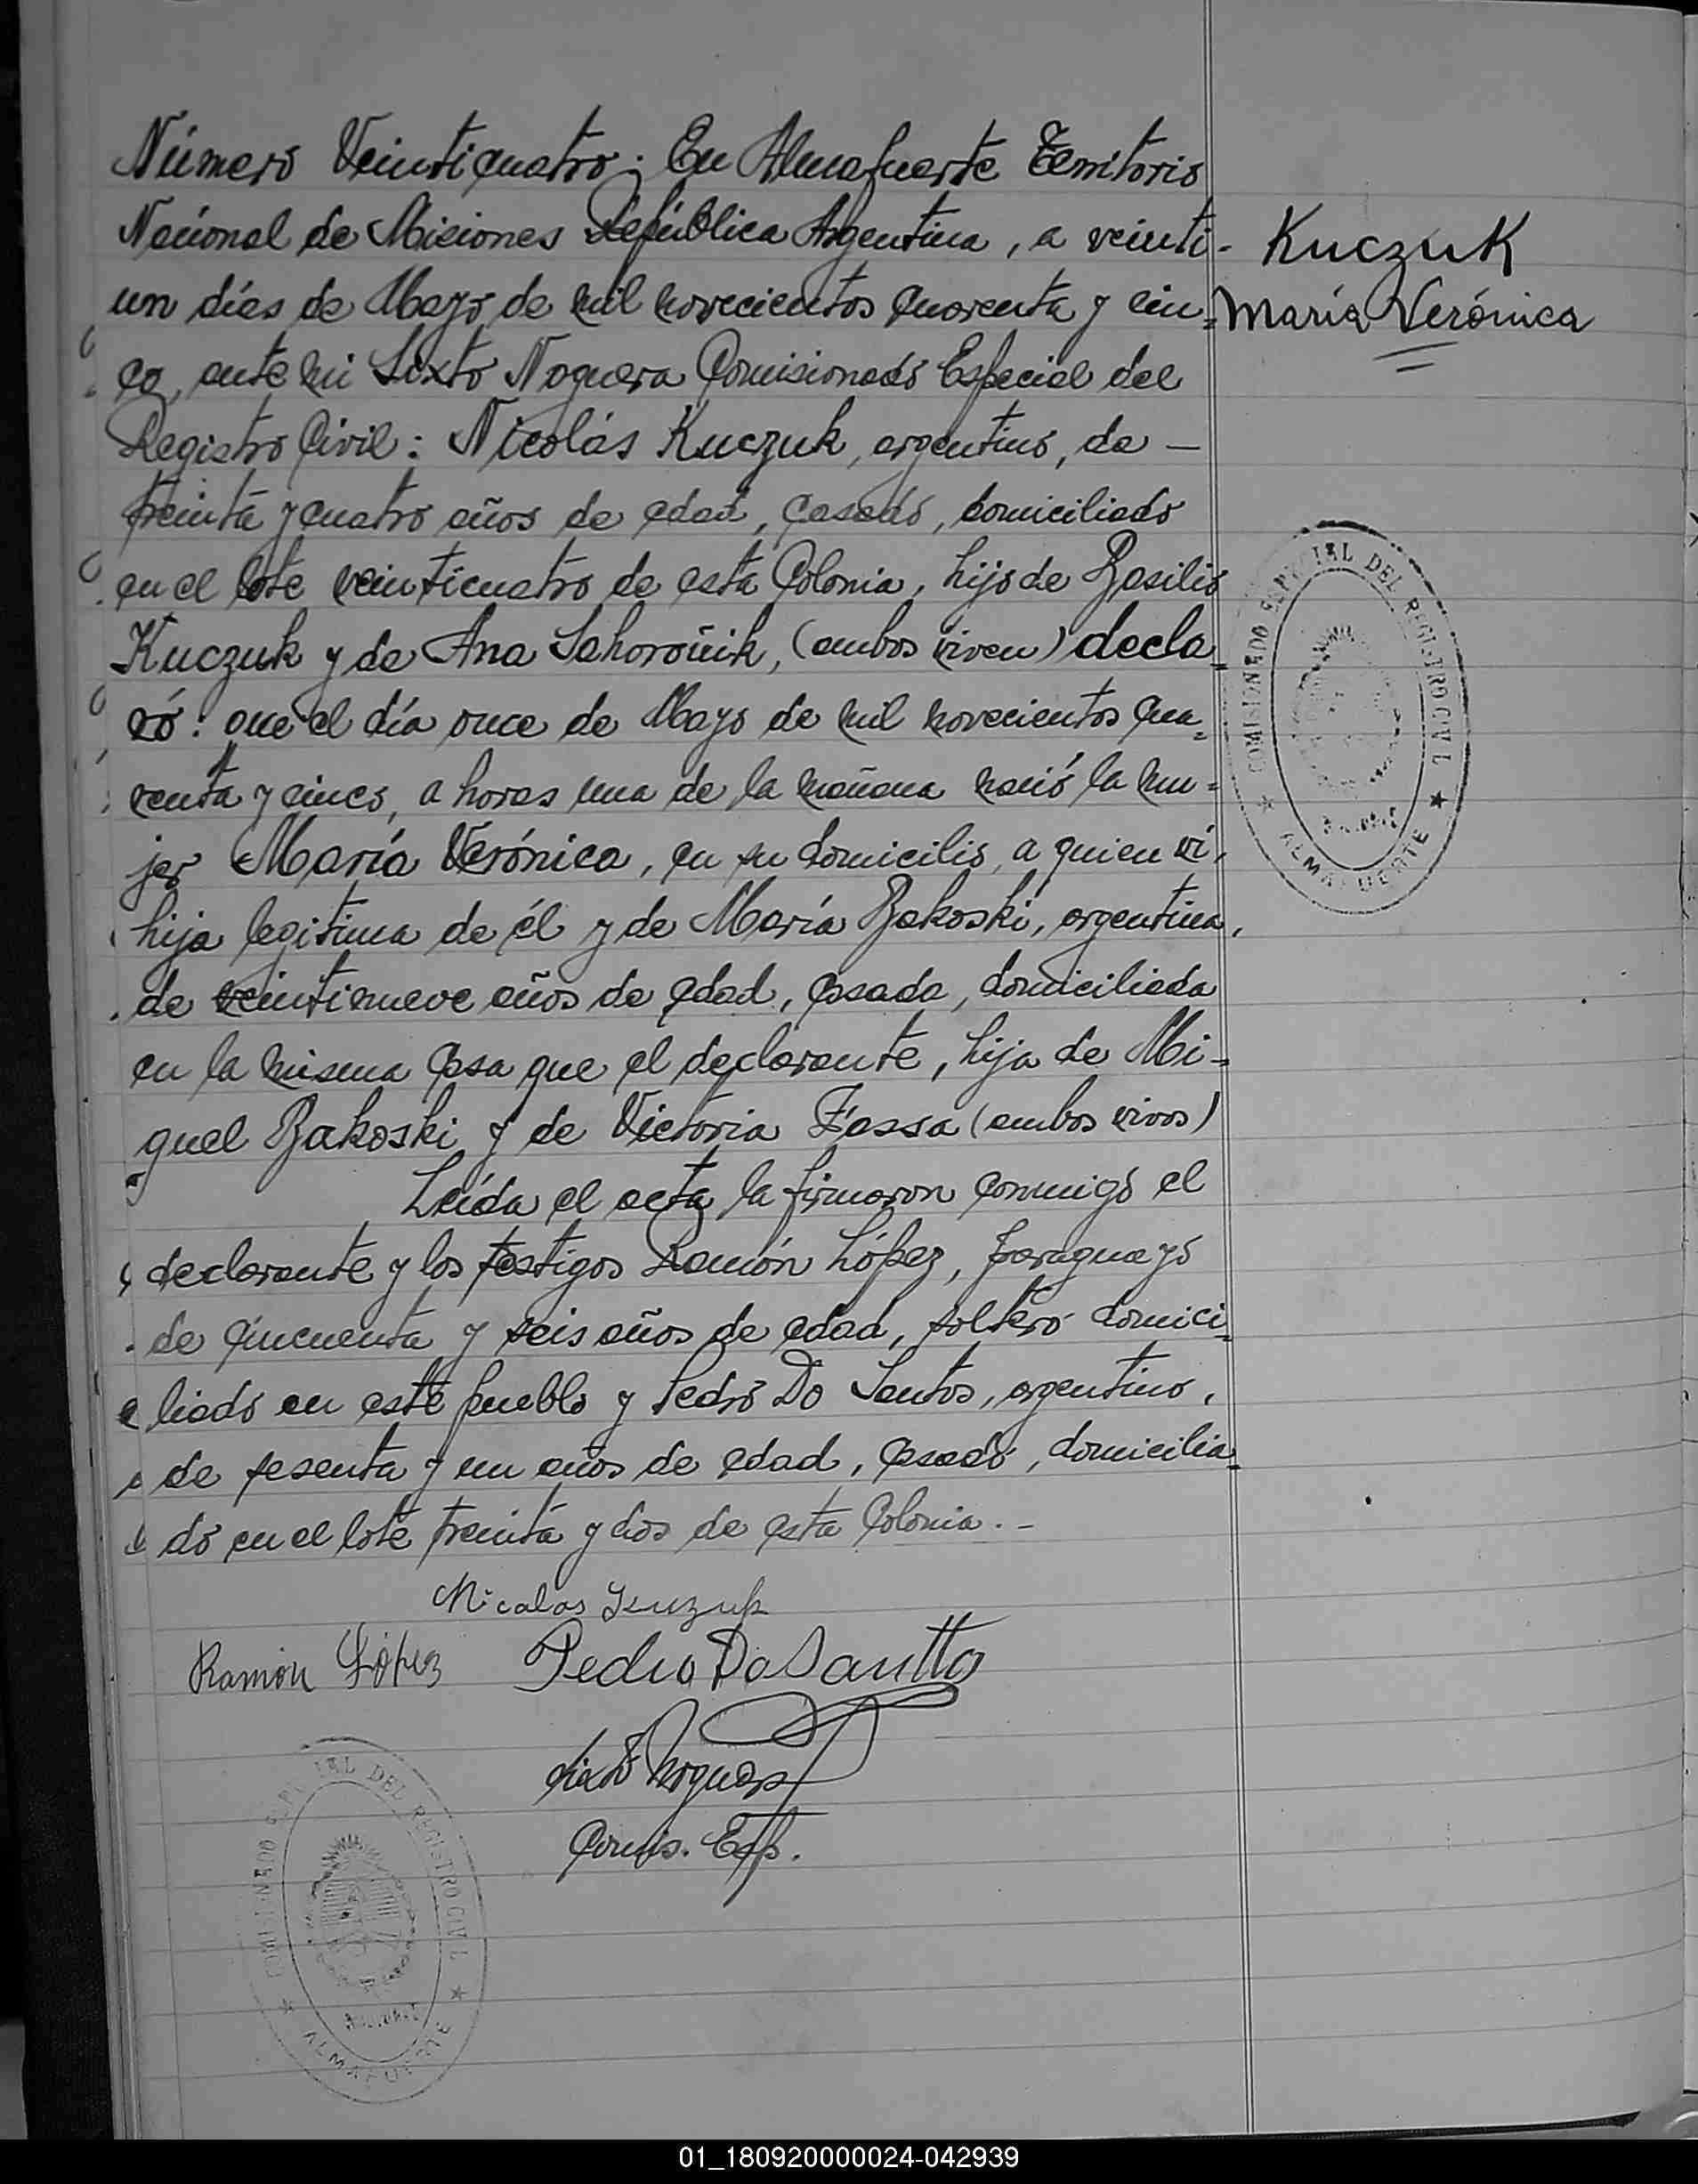 Número Veinticuatro: En Almafuerte Territorio
Nacional de Misiones República Argentina, a veinti-
un días de Mayo de mil novecientos cuarenta y cin=
co, ante mi Sixto Noguera Comisionado Especial del
Registro Civil: Nicolás Kuczuk, argentino, de —
treinta y cuatro años de edad, casado, domiciliado
en el lote veinticuatro de esta Colonia, hijo de Basilio
Kuczuk y de Ana (ambos viven) decla=
ró: que el día once de Mayo de mil novecientos cua=
renta y cinco, a horas una de la mañana nació la mu=
jer María Verónica, en su domicilio, a quien vi,
hija legitima de él y de María Bakoski, argentina,
de veintinueve años de edad, casada, domiciliada
en la misma casa que el declarante, hija de Mi=
guel Bakoski y de Victoria (ambos vivos)
Leída el acta la firmaron conmigo el
declarante y los testigos Ramón López, paraguayo
de cincuenta y seis años de edad, soltero domici=
liado en este pueblo y Pedro Do Santos, argentino,
de sesenta y un años de edad, casado, domicilia=
do en el lote treinta y dos de esta Colonia.-
Kuczuk
María Verónica
COMISIONADO ESPECIAL DEL REGISTRO CIVIL
ALMAFUERTE
Nicolas Kuzuk
Ramón López Pedro Do Santto
Sixto Noguera
Comis. Esp.
COMISIONADO ESPECIAL DEL REGISTRO CIVIL
ALMAFUERTE
01_180920000024-042939